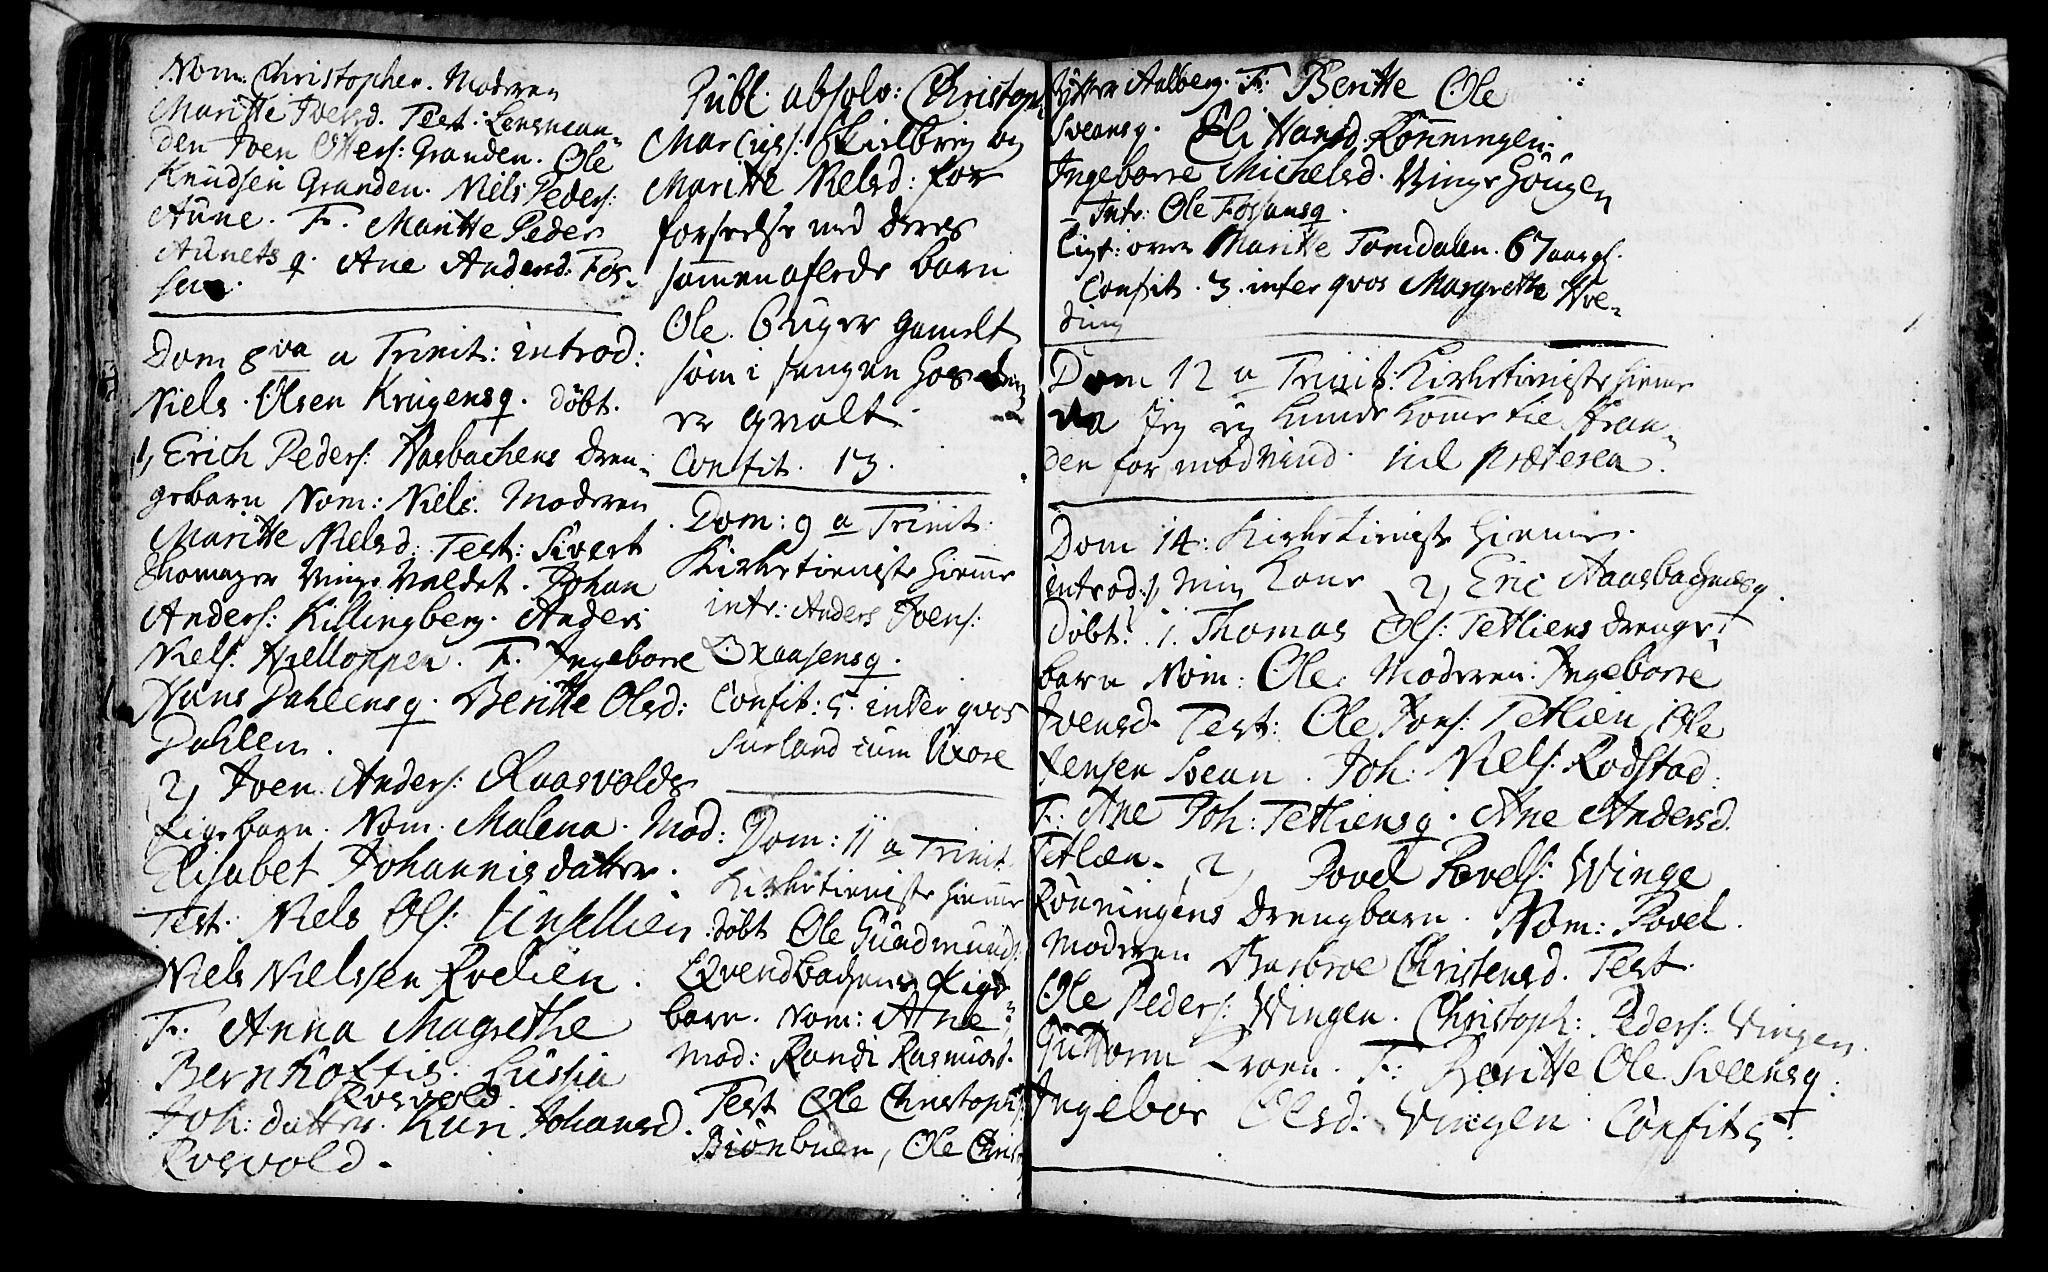 Nom: Christopher. Moderen
Maritte Joensd. Test: Lensman-
den Joen Otters: Granden. Ole
Knudsen Granden. Niels Peders:
Aune. F. Maritte Peder
Aunets q. Ane Andersd. Fos-
san.
Dom 8va a Trinit: introd:
Niels Olsen Krugensq. döbt.
1, Erich Peders: Aasbachens dren-
gebarn Nom: Niels. Moderen
Maritte Nielsd. Test: Sivert
Vinge Valdet. Johan
Anders: Killingberg. Anders
Niels: F. Ingeborre
Hans Dahlensq. Beritte Olsd:
Dahlen.
2, Joen Anders: Raasvolds
Pigebarn. Nom. Malena. Mod:
Elisabet Johannisdatter.
Test. Niels Ols:
Niels Nielssen Roelien.
F. Anna Magrethe
Bernhoftis. Lussia
Rosvold
Joh: datter. Kari Johansd.
Rosvold.
Publ. absolv: Christoph
Marcuss: Skielbrej og
Maritte Nielsd: for
forseelse med deres
sammenaflede barn
Ole 6 uger gamelt
som i sengen hos dem
er qvalt.
Confit. 13.
Dom: 9 a Trinit.
Kirketieniste hiemme
intr: Anders Joens:
Braasensq.
Confit: 5. inter qvos
Surland cum Uxore
Dom: 11 a Trinit.
Kirketieniste hiemme
döbt Ole Gudmunds:
Qvendbachens Pige-
barn. Nom: Ane
Mod: Randi Rasmusd.
Test Ole Christoph:
Biönbuen, Ole Christ
Aalberg. F: Beritte Ole
Sveansq. Eli Hansd. Rönningen.
Ingeborre Michelsd. Vingehougen
Intr: Ole Fossansq.
Ligt: over Maritte Tomdalen. 67 aar gl.
Confit. 3. inter qvos Margrethe Hve-
ding
Dom 12 a Trinit: Kirketieniste hiemme
da Jeg ej kunde komme til Stran-
den for modvind. Nil præterea.
Dom 14: Kirketieniste hiemme.
introd: 1, Min Kone 2, Eric Aaasbachensq.
Döbt: 1. Thomas Ols: Tetliens drenge-
barn Nom: Ole. Moderen: Ingeborre
Joensd. Test: Ole Jons: Tetlien, Ole
Jensen Svean. Joh: Niels: Rödstad.
F. Ane Joh: Tetliensq. Ane Andersd.
Tetlien. 2, Povel Povels: Winge
Rönningens drengbarn. Nom: Povel.
Moderen Barbroe Christensd. Test.
Ole Peders: Wingen. Christoph: Peders: Vingen.
Guttorm Kroen. F: Beritte Ole Sveensq.
Ingebor Olsd: Vingen. Confit 5.